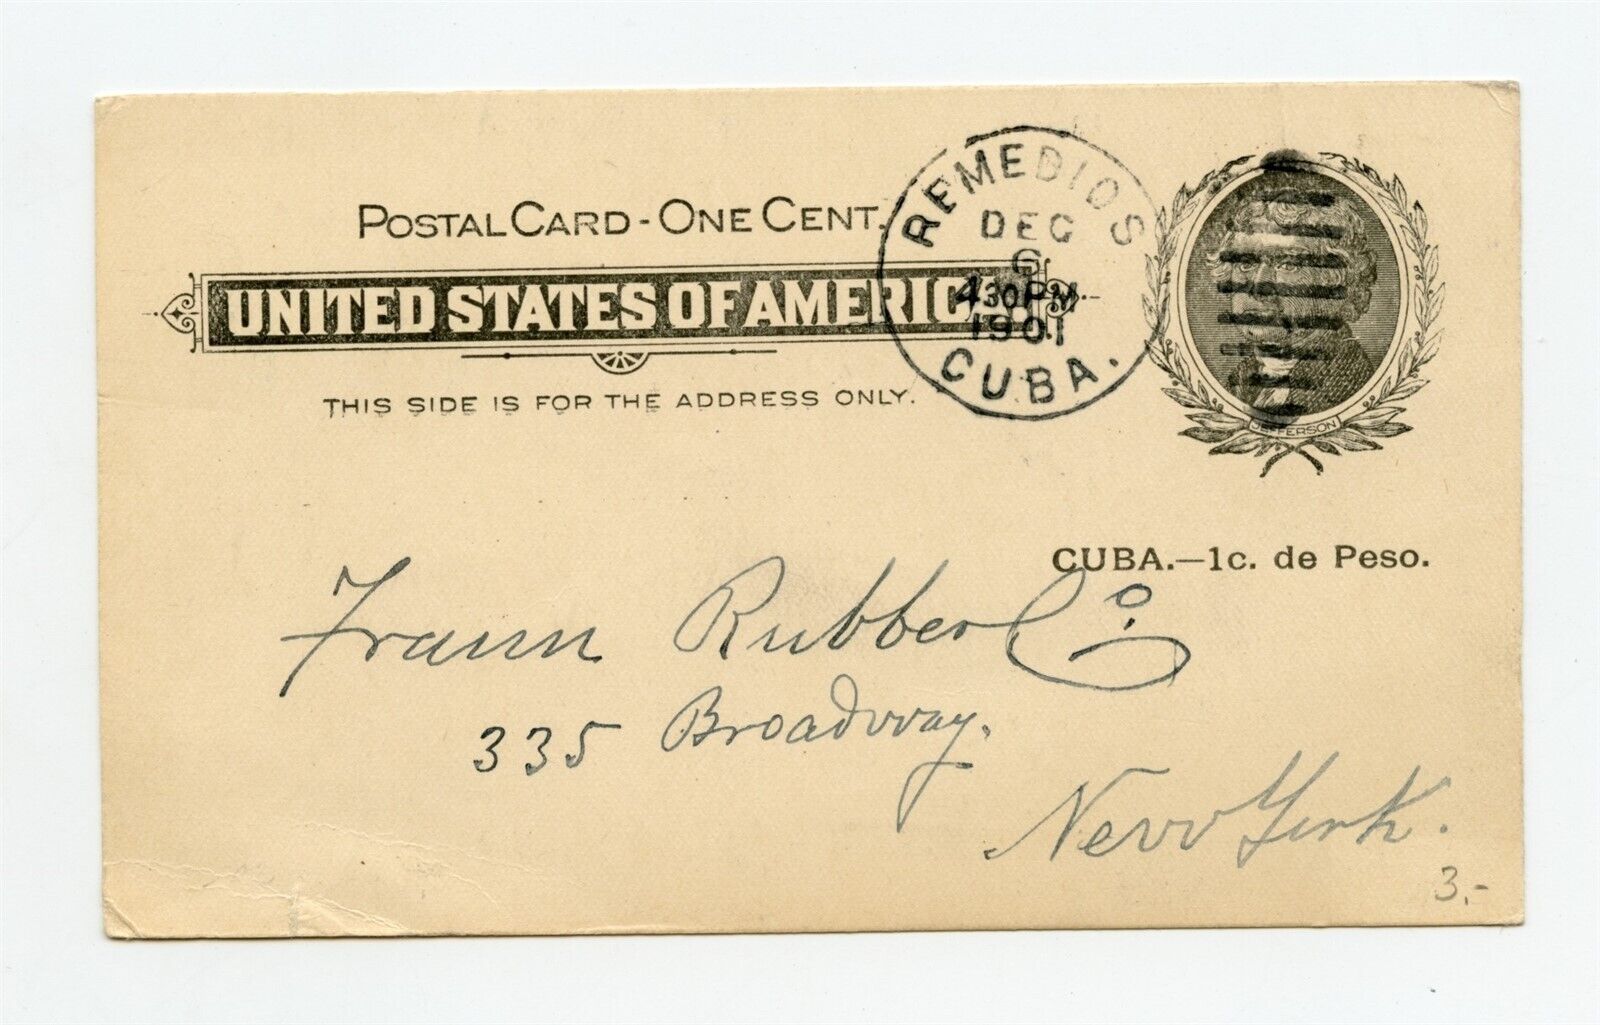 POSTAL CARD - ONE CENT.
UNITED STATES OF AMERICA
THIS SIDE IS FOR THE ADDRESS ONLY.
REMEDIOS
DEC
6
430PM
1901
CUBA.
JEFFERSON
CUBA.—1c. de Peso.
Fraun Rubber Co.
335 Broadway.
New York.
3.-